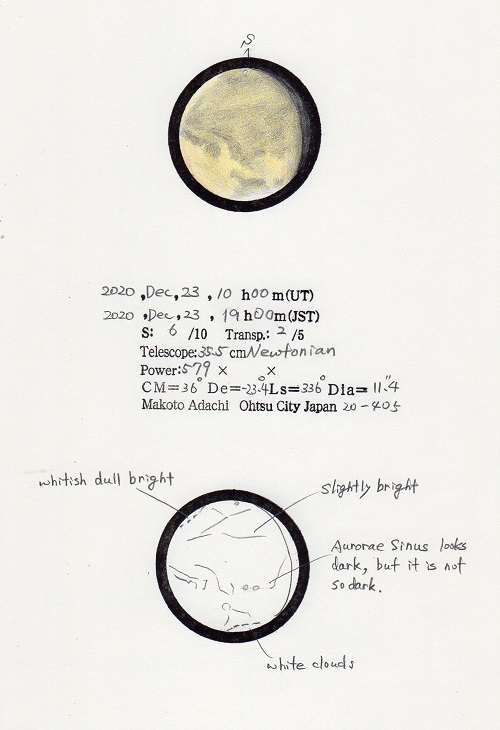 S
2020 ,Dec,23 , 10 h00m(UT)
2020 ,Dec,23 , 19h00m(JST)
S: 6 /10 Transp.: 2 /5
Telescope:35.5cmNewtonian
Power:579 × ×
CM=36° De=-23.°4 Ls=336° Dia=11."4
Makoto Adachi Ohtsu City Japan 20-405
whitish dull bright
slightly bright
Aurorae Sinus looks
dark, but it is not
so dark.
white clouds